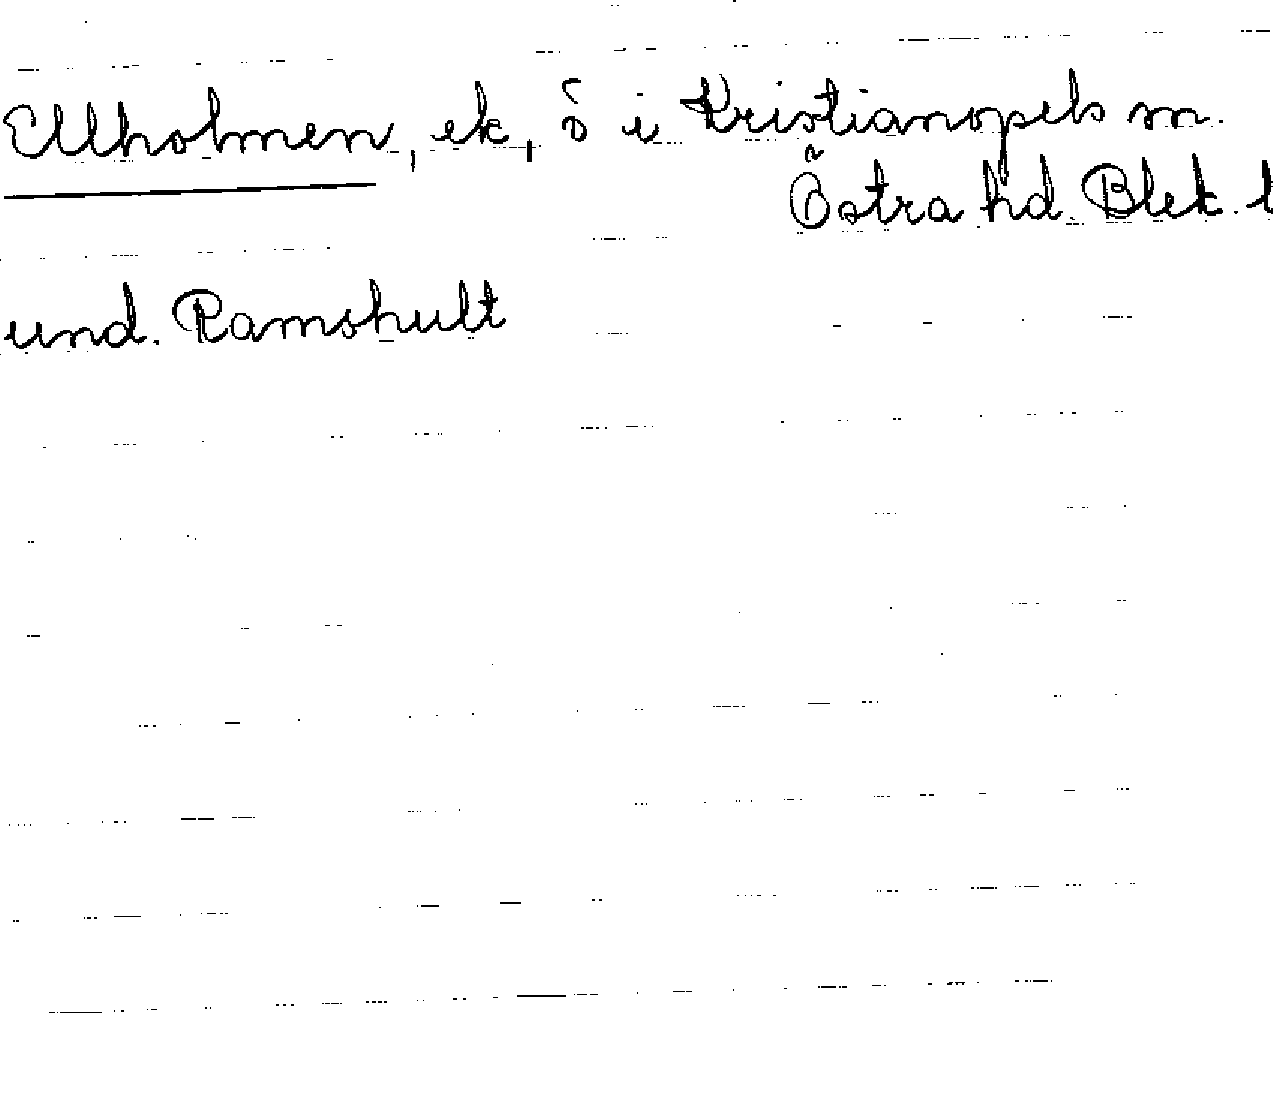 Ellholmen, ek, ö i Kristianopels sn.
Östra hd. Blek. l
und. Ramshult